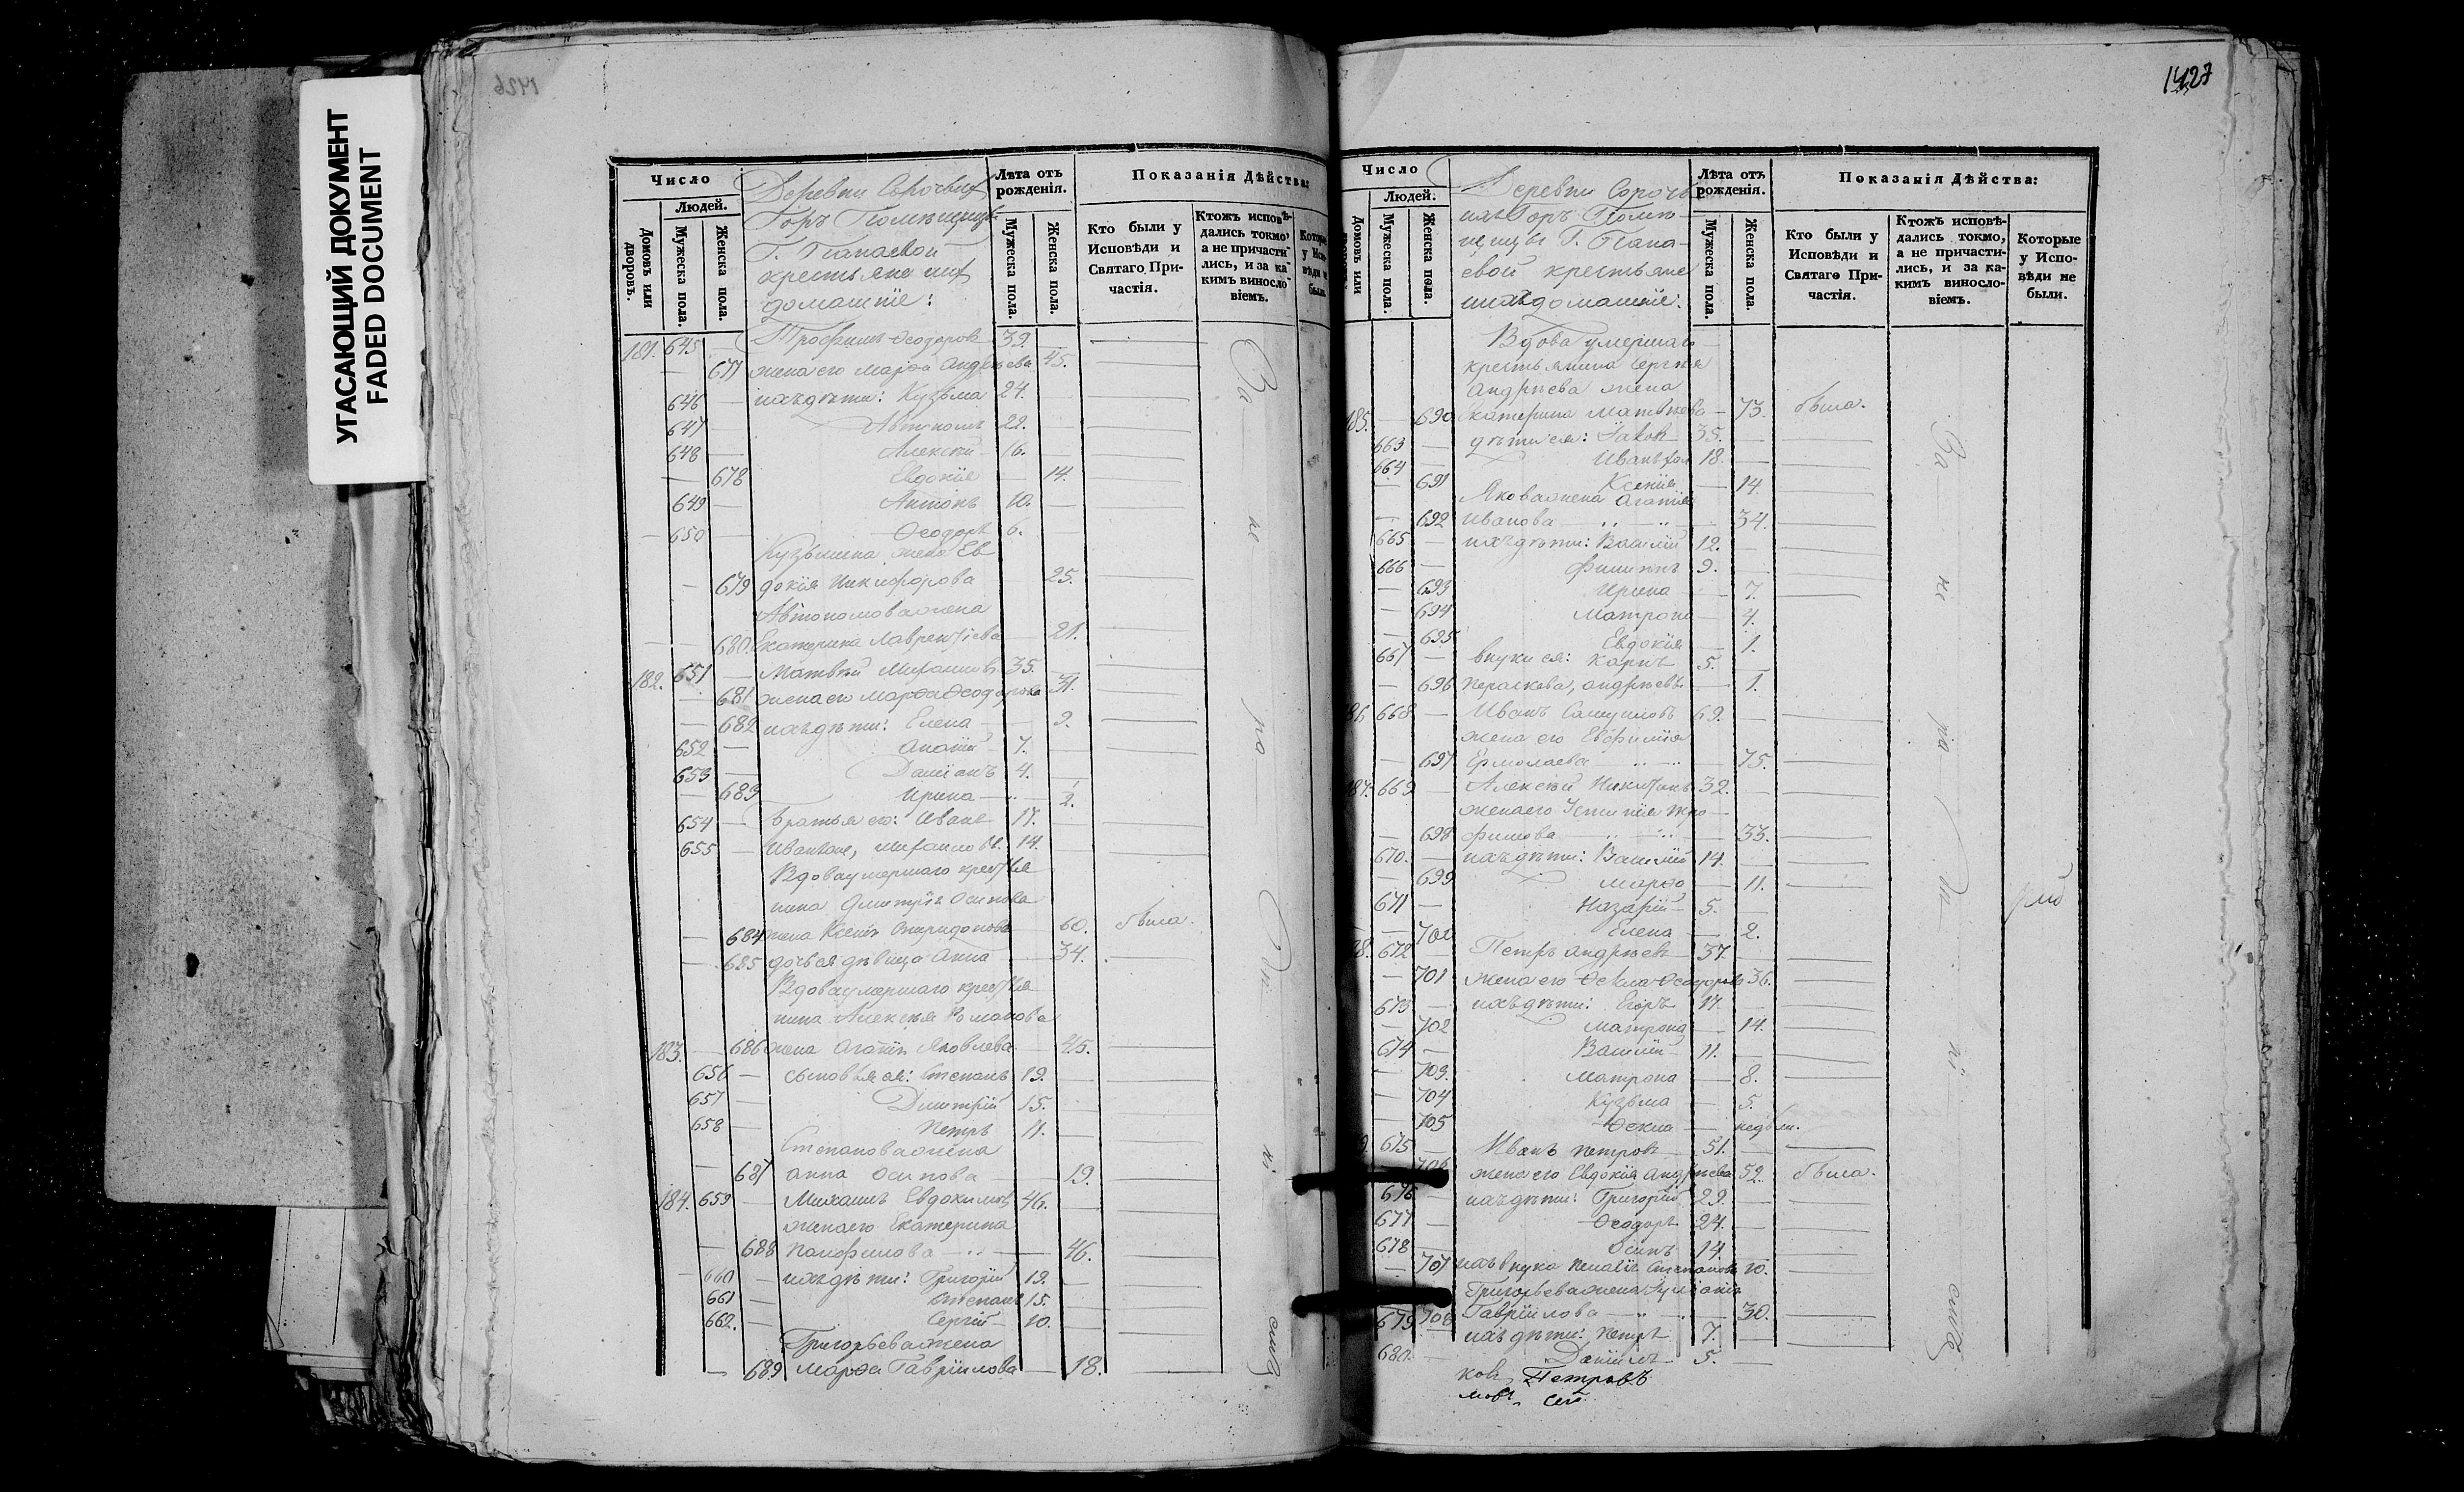 УГАСАЮЩИЙ ДОКУМЕНТ
FADED DOCUMENT
1426
Число
Людей.
Домовъ или дворовъ.
Мужеска пола.
Женска пола.
Деревни Сорочьихъ
Горъ Помѣщицы
Г. Панаевой
крестьяне ихъ
домашніе:
Лѣта отъ рожденія.
Мужеска пола.
Женска пола.
Показанія Дѣйства:
Кто были у Исповѣди и Святаго Причастія.
Ктожъ исповѣдались токмо, а не причастились, и за какимъ винословіемъ.
181. 645 — Трофимъ Ѳеодоровъ 39.
— 677 жена его Марѳа Андреева 45.
646 — ихъ дѣти: Кузьма 24.
647 — Автономъ 22.
648 — Алексѣй 16.
— 678 Евдокія — 14.
649 — Антонъ 10.
— 650 — Ѳеодоръ 6.
Кузьмина жена Ев
— 679 докія Никифорова 25.
Автономова жена
— 680. Екатерина Лаврентіева 21.
182. 651 — Матвѣй Михаиловъ 35.
— 681 жена его Марѳа Ѳеодорова 31.
— 682 ихъ дѣти: Елена — 9.
652 — 7.
653 — Даміанъ 4.
— 683 Ирина — 2.
654 — братья его: Иванъ 17.
655 — Иванъ же, Михаиловы. 14.
Вдова умершаго крестья
нина Димитрія Осипова
— 684 жена Ксенія Спиридонова 60. была.
— 685 дочь ея дѣвица Анна 34.
Вдова умершаго крестья
нина Алексѣя Романова
183. — 686 жена Агаѳія Яковлева 45.
656 — сыновья ея: Степанъ 19.
657 — Димитрій 15.
658 — Петръ 11.
Степанова жена
— 687 Анна Осипова 19.
184. 659 — Михаилъ Евдокимовъ 46.
жена его Екатерина
— 688 Панфилова — 46.
— 660 — ихъ дѣти: Григорій 19.
661 — Степанъ 15.
662. — Сергій 10.
Григорьева жена
— 689 Марѳа Гавріилова — 18.
За не ра
1427
Число
Людей.
Мужеска пола.
Женска пола.
Деревни Сорочь
ихъ Горъ Помѣ
щицы Г. Пана
евой крестьяне
ихъ домашніе:
Лѣта отъ рожденія.
Мужеска пола.
Женска пола.
Показанія Дѣйства:
Кто были у Исповѣди и Святаго Причастія.
Ктожъ исповѣдались токмо, а не причастились, и за какимъ винословіемъ.
Которые у Исповѣди не были.
Вдова умершаго
крестьянина Сергѣя
Андрѣева жена
185. — 690 Екатерина Матвѣева — 73. была.
663 — дѣти ея: Іаковъ 35.
664 — Иванъ 18.
— 691 Ксенія — 14.
Якова жена Агаѳія
— 692 Иванова — 34.
665 — ихъ дѣти: Василій 12.
666 — Филиппъ 9.
— 693 Ирина — 7.
— 694 Матрона — 4.
— 695 Евдокія — 1.
667 — внуки ея: Карпъ 5.
— 696 Параскева, Андрѣевы — 1.
186 668 — Иванъ Самуиловъ 69.
жена его Евфимія
— 697 Ермолаева — 75.
187. 669 — Алексѣй Никитинъ 32.
жена его Устинія Тро
— 698 фимова — 33.
670. — ихъ дѣти: Василій 14.
— 699 Марѳа — 11.
671 — Назарій 5.
— 700 Елена — 2.
672 — Петръ Андрѣевъ 37.
— 701 жена его Ѳекла Ѳеодорова 36.
673 — ихъ дѣти: Егоръ 17.
— 702 Матрона — 14.
674 — Василій 11.
— 703. Матрона — 8.
— 704 Кузьма — 5.
— 705 Ѳекла — недѣли.
675 — Иванъ Петровъ 51.
706 жена его Евдокія Андрѣева 52. была.
676 ихъ дѣти: Григорій 29.
677 — Ѳеодоръ 24.
678 Осипъ 14.
— 707 ихъ внука Степанова 10.
Григорьева жена
708 Гавріилова — 30.
679 — ихъ дѣти: Петръ 7.
680. — Даніилъ 5.
ковъ Петровъ
За не